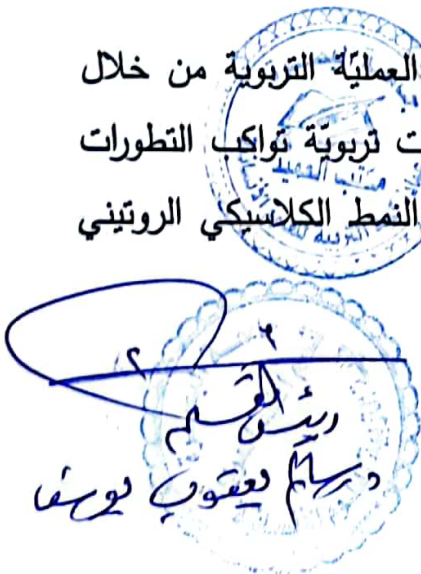 العمليّة التربوية من خلال
ت تربويّة تواكب التطورات
النمط الكلاسيكي الروتيني
رئيس القسم
يعقوب يوسف